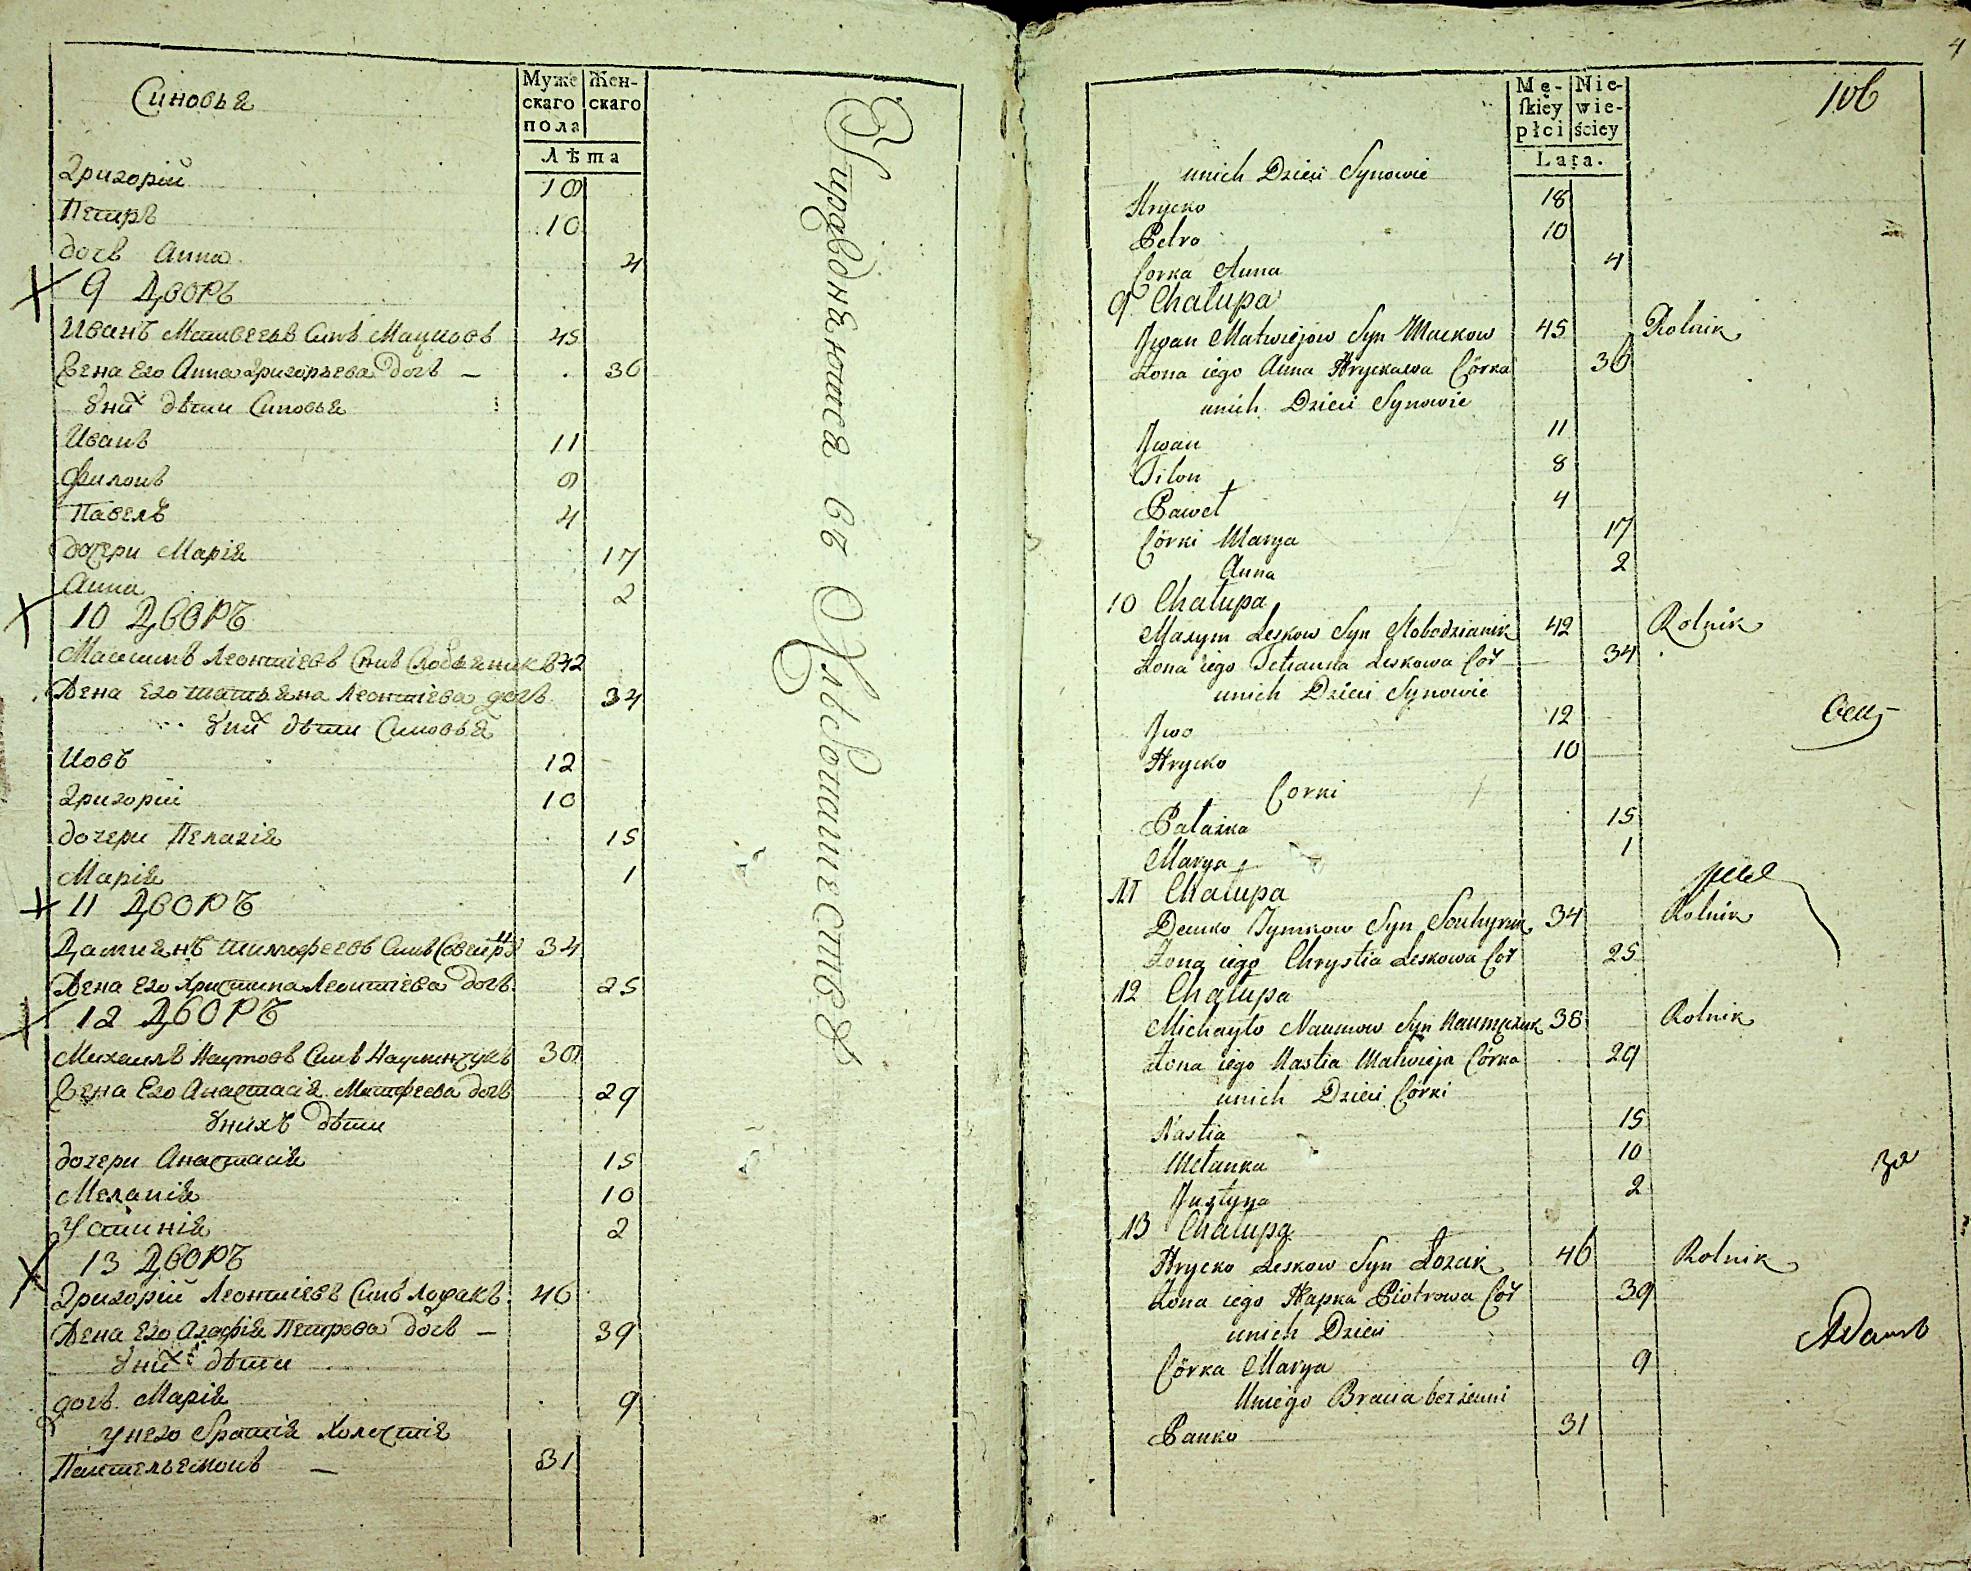 Синовья
Муже
скаго
пола
Жен-
скаго
Лѣта
Григорій 18
Петръ 10
дочь Анна 4
9 Дворъ
Иванъ Матвеевъ Синъ Мацковъ 45
Жена Его Анна Григорьева дочь — 36
Уних дѣти Синовья
Иванъ 11
Филонъ 8
Павелъ 4
дочери Марія 17
Анна 2
10 Дворъ
Максимъ Леонтіевъ Синъ Слободяникъ 42
Жена Его Татьяна Леонтіева дочь 34
Уних дѣти Синовья
Иовъ 12
Григорій 10
дочери Пелагія 15
Марія 1
11 Дворъ
Дамиянъ Тимофеевъ Синъ 34
Жена Его Христина Леонтіева дочь 25
12 Дворъ
Михаилъ Наумовъ Синъ Наумчукъ 38
Жена Его Анастасія Матфеева дочь 29
Унихъ дѣти
дочери Анастасія 15
Меланія 10
Устинія 2
13 Дворъ
Григорій Леонтіевъ Синъ Лозакъ 46
Жена Его Агафія Петрова дочь — 39
Уних дѣти
дочь Марія 9
Унего братія Холостія
Пантелеемонъ — 31
Упражняются въ Хлебопашестве
4
106
Mę-
skiey
płci
Nie-
wie-
ściey
Lata.
unich Dzieci Synowie
Hrycko 18
Petro 10
Corka Anna 4
9 Chałupa
Jwan Matwiejow Syn Mackow 45 Rolnik
Żona iego Anna Hryckowa Córka 36
unich Dzieci Synowie
Jwan 11
Filon 8
Paweł 4
Córki Marya 17
Anna 2
10 Chałupa
Maxym Leskow Syn Słobodzianik 42 Rolnik
Żona iego Tetianna Leskowa Cór 34
unich Dzieci Synowie
Jwo 12
Hrycko 10
Corki
Pałażka 15
Marya 1
11 Chałupa
Demko Tymkow Syn 34 Rolnik
Żona iego Chrystia Leskowa Cór 25
12 Chałupa
Michayło Naumow Syn Naumczuk 38 Rolnik
Żona iego Nastia Matwieja Córka 29
unich Dzieci Córki
Nastia 15
Mełanka 10
Justyna 2
13 Chałupa
Hrycko Leskow Syn Łozak 46 Rolnik
Żona iego Hapka Piotrowa Cór 39
unich Dzieci
Córka Marya 9
Uniego Bracia bezżenni
Panko 31
за
Адамъ